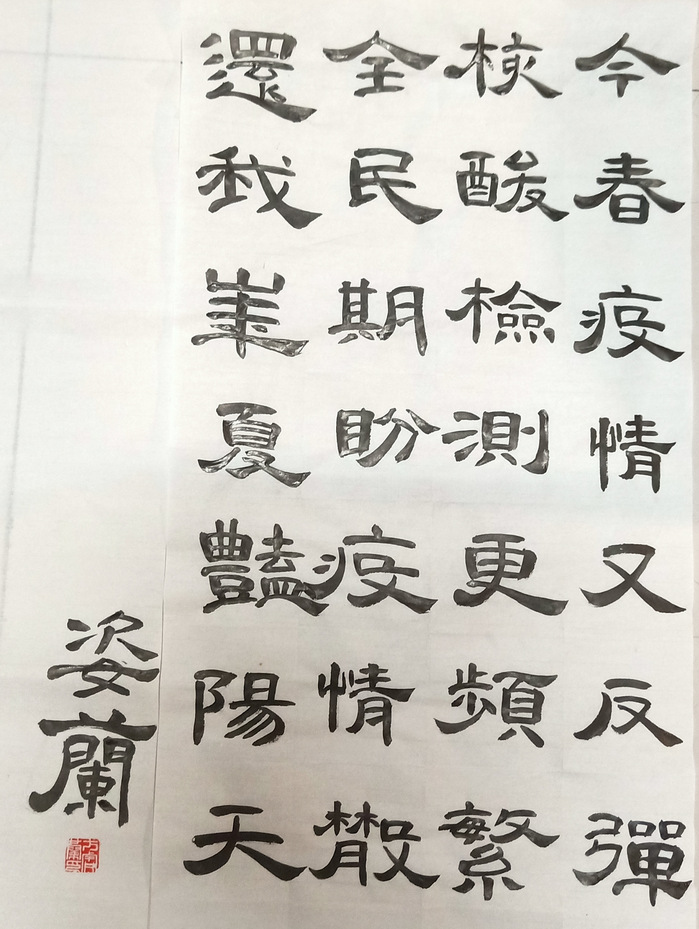 今春疫情又反彈
核酸檢測更頻繁
全民期盼疫情散
還我華夏豔陽天
姿蘭